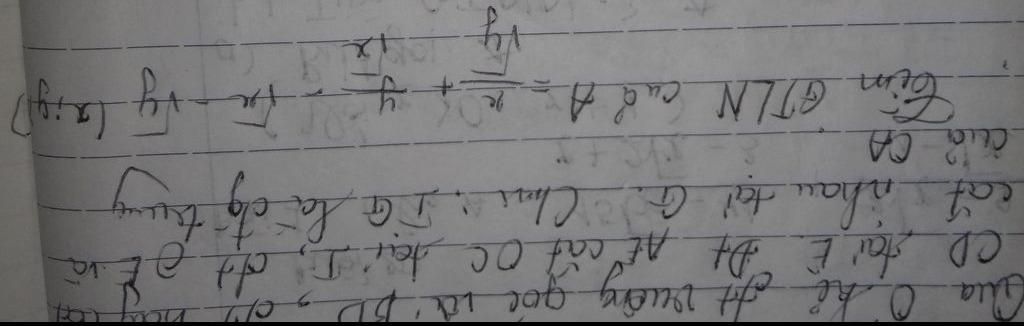 Qua O kẻ đt vuông góc với BD, đt này cắt
CD tại E. Đt AE cắt OC tại I, đt OE và
cắt nhau tại G. Cmr: IG là đg trung
của CA
Tìm GTLN của A = x/√y + y/√x - √x - √y (x;y)